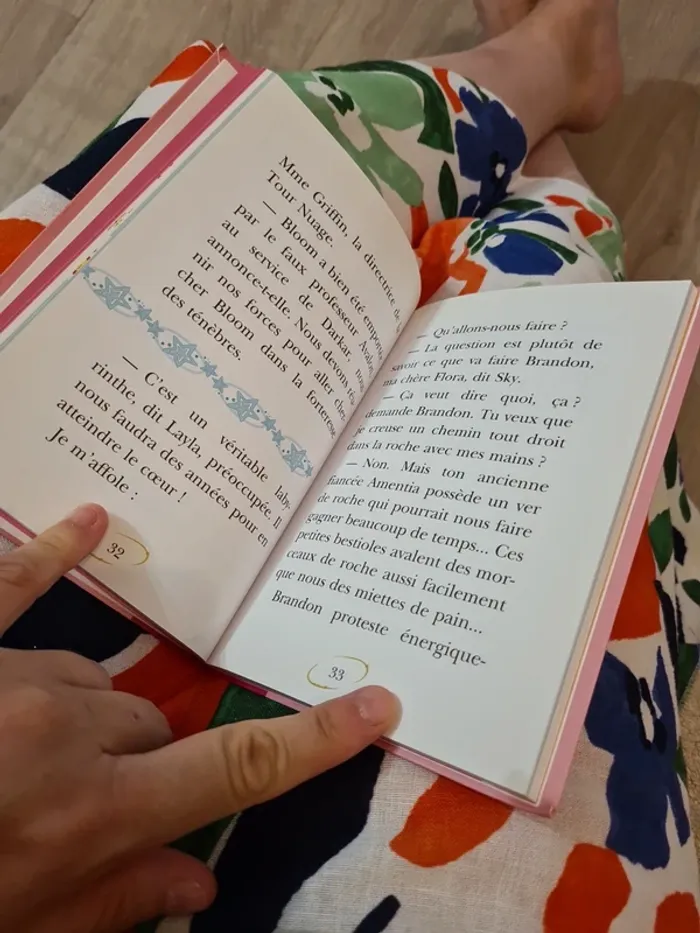 Mme Griffin, la directrice de la
Tour Nuage.
— Bloom a bien été emportée
par le faux professeur Avalon
au service de Darkar, nous
annonce-t-elle. Nous devons réu-
nir nos forces pour aller cher-
cher Bloom dans la forteresse
des ténèbres.
— C'est un véritable laby-
rinthe, dit Layla, préoccupée. Il
nous faudra des années pour en
atteindre le cœur !
Je m'affole :
32
— Qu'allons-nous faire ?
— La question est plutôt de
savoir ce que va faire Brandon,
ma chère Flora, dit Sky.
— Ça veut dire quoi, ça ?
demande Brandon. Tu veux que
je creuse un chemin tout droit
dans la roche avec mes mains ?
— Non. Mais ton ancienne
fiancée Amentia possède un ver
de roche qui pourrait nous faire
gagner beaucoup de temps... Ces
petites bestioles avalent des mor-
ceaux de roche aussi facilement
que nous des miettes de pain...
Brandon proteste énergique-
33